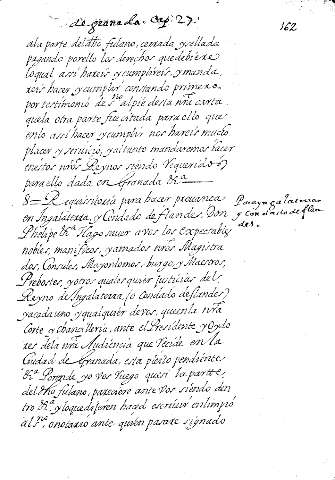 de granada. Cap. 27.
162
ala parte del dho fulano, cerrada, y sellada
pagando por ello los derechos que debiere
lo qual assi hareis y cumplireis, y manda
reis hacer y cumplir constando primero,
por testimonio de sno al pie desta nra carta
que la otra parte fue citada para ello que
en lo assi hacer y cumplir nos hareis mucho
placer y servicio, y al tanto mandaremos hacer
en estos nros Reynos siendo requeridos
para ello dado en Granada &a
8= Requisitoria para hacer provanca
en Ingalaterra, y Condado de flandes. Don
Phelipe &a Hago saver a vos los expectables
nobles, manificos, y amados nros Magistra
dos, Consules, Mayordomos, burgo, y Maestros,
Prebostes, y otros quales quier justicias del
Reyno de Ingalaterra, (o Condado de flandes)
y a cada uno y qualquier de vos, que en la nra
Corte y Chancilleria, ante el Presidente y Oydo
res de la nra Audiencia que reside en la
Ciudad de Granada, esta pleito pendiente
&a Porende yo vos ruego que si la parte
del dho fulano, pareciere ante vos siendo den
tro &a y lo que dijeren hagais escrivir en limpio
al sno, o notario ante quien passare signado
Para yngalaterra
y condado de flan
des.